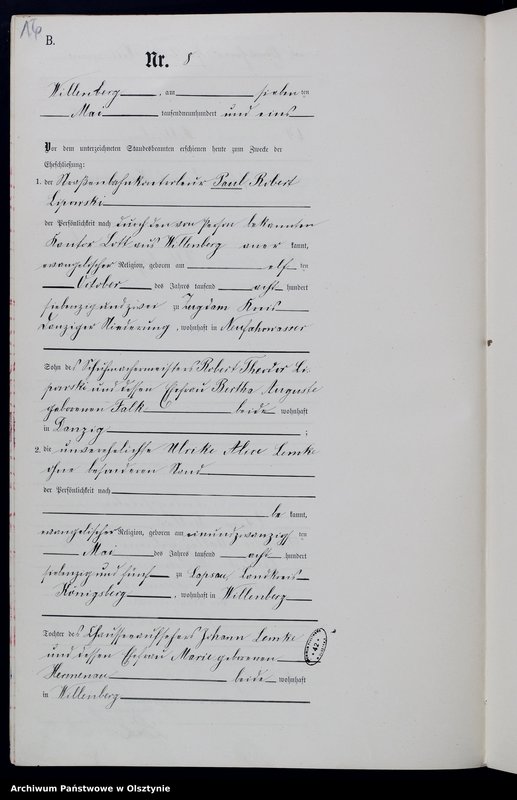 B.
Nr. 8
Willenberg, am sieben ten
Mai tausendneunhundert und eins
Vor dem unterzeichneten Standesbeamten erschienen heute zum Zwecke der
Eheschließung:
1. der Straßenbahnkontorleur Paul Robert
Lipowski
der Persönlichkeit nach durch den von Person bekannten
Kantor Lott aus Willenberg aner kannt,
evangelischer Religion, geboren am elf ten
October des Jahres tausend acht hundert
siebenzig und zwei zu Kreis
Danziger Niederung, wohnhaft in Neufahrwasser
Sohn des Schuhmachermeisters Robert Theodor Li-
powski und dessen Ehefrau Bertha Auguste
geborenen Falk beide wohnhaft
in Danzig ;
2. die unverehelichte Ulrike Alice Lemke
ohne besonderen Stand
der Persönlichkeit nach
be kannt,
evangelischer Religion, geboren am einundzwanzig ten
Mai des Jahres tausend acht hundert
siebenzig und fünf zu Landkreis
Königsberg, wohnhaft in Willenberg
Tochter des Chausseeaufsehers Johann Lemke
und dessen Ehefrau Marie geborenen
Hermenau beide wohnhaft
in Willenberg
42
Archiwum Państwowe w Olsztynie